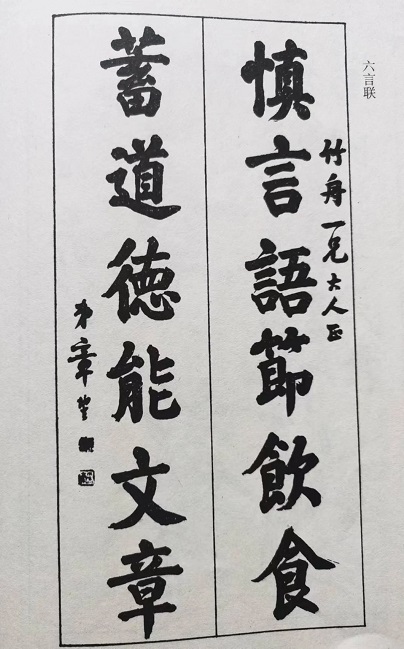 六言联
竹舟一兄大人正
慎言語節飲食
蓄道德能文章
弟章